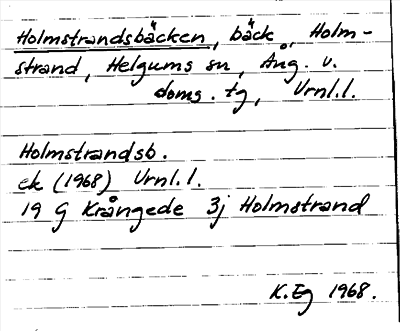 Holmstrandsbäcken, bäck, Holm-
strand, Helgums sn, Ång. v.
doms. tg, Vrnl.l.
Holmstrandsb.
ek (1968) Vrnl.l.
19 G Krångede 3j Holmstrand
K.Eg 1968.